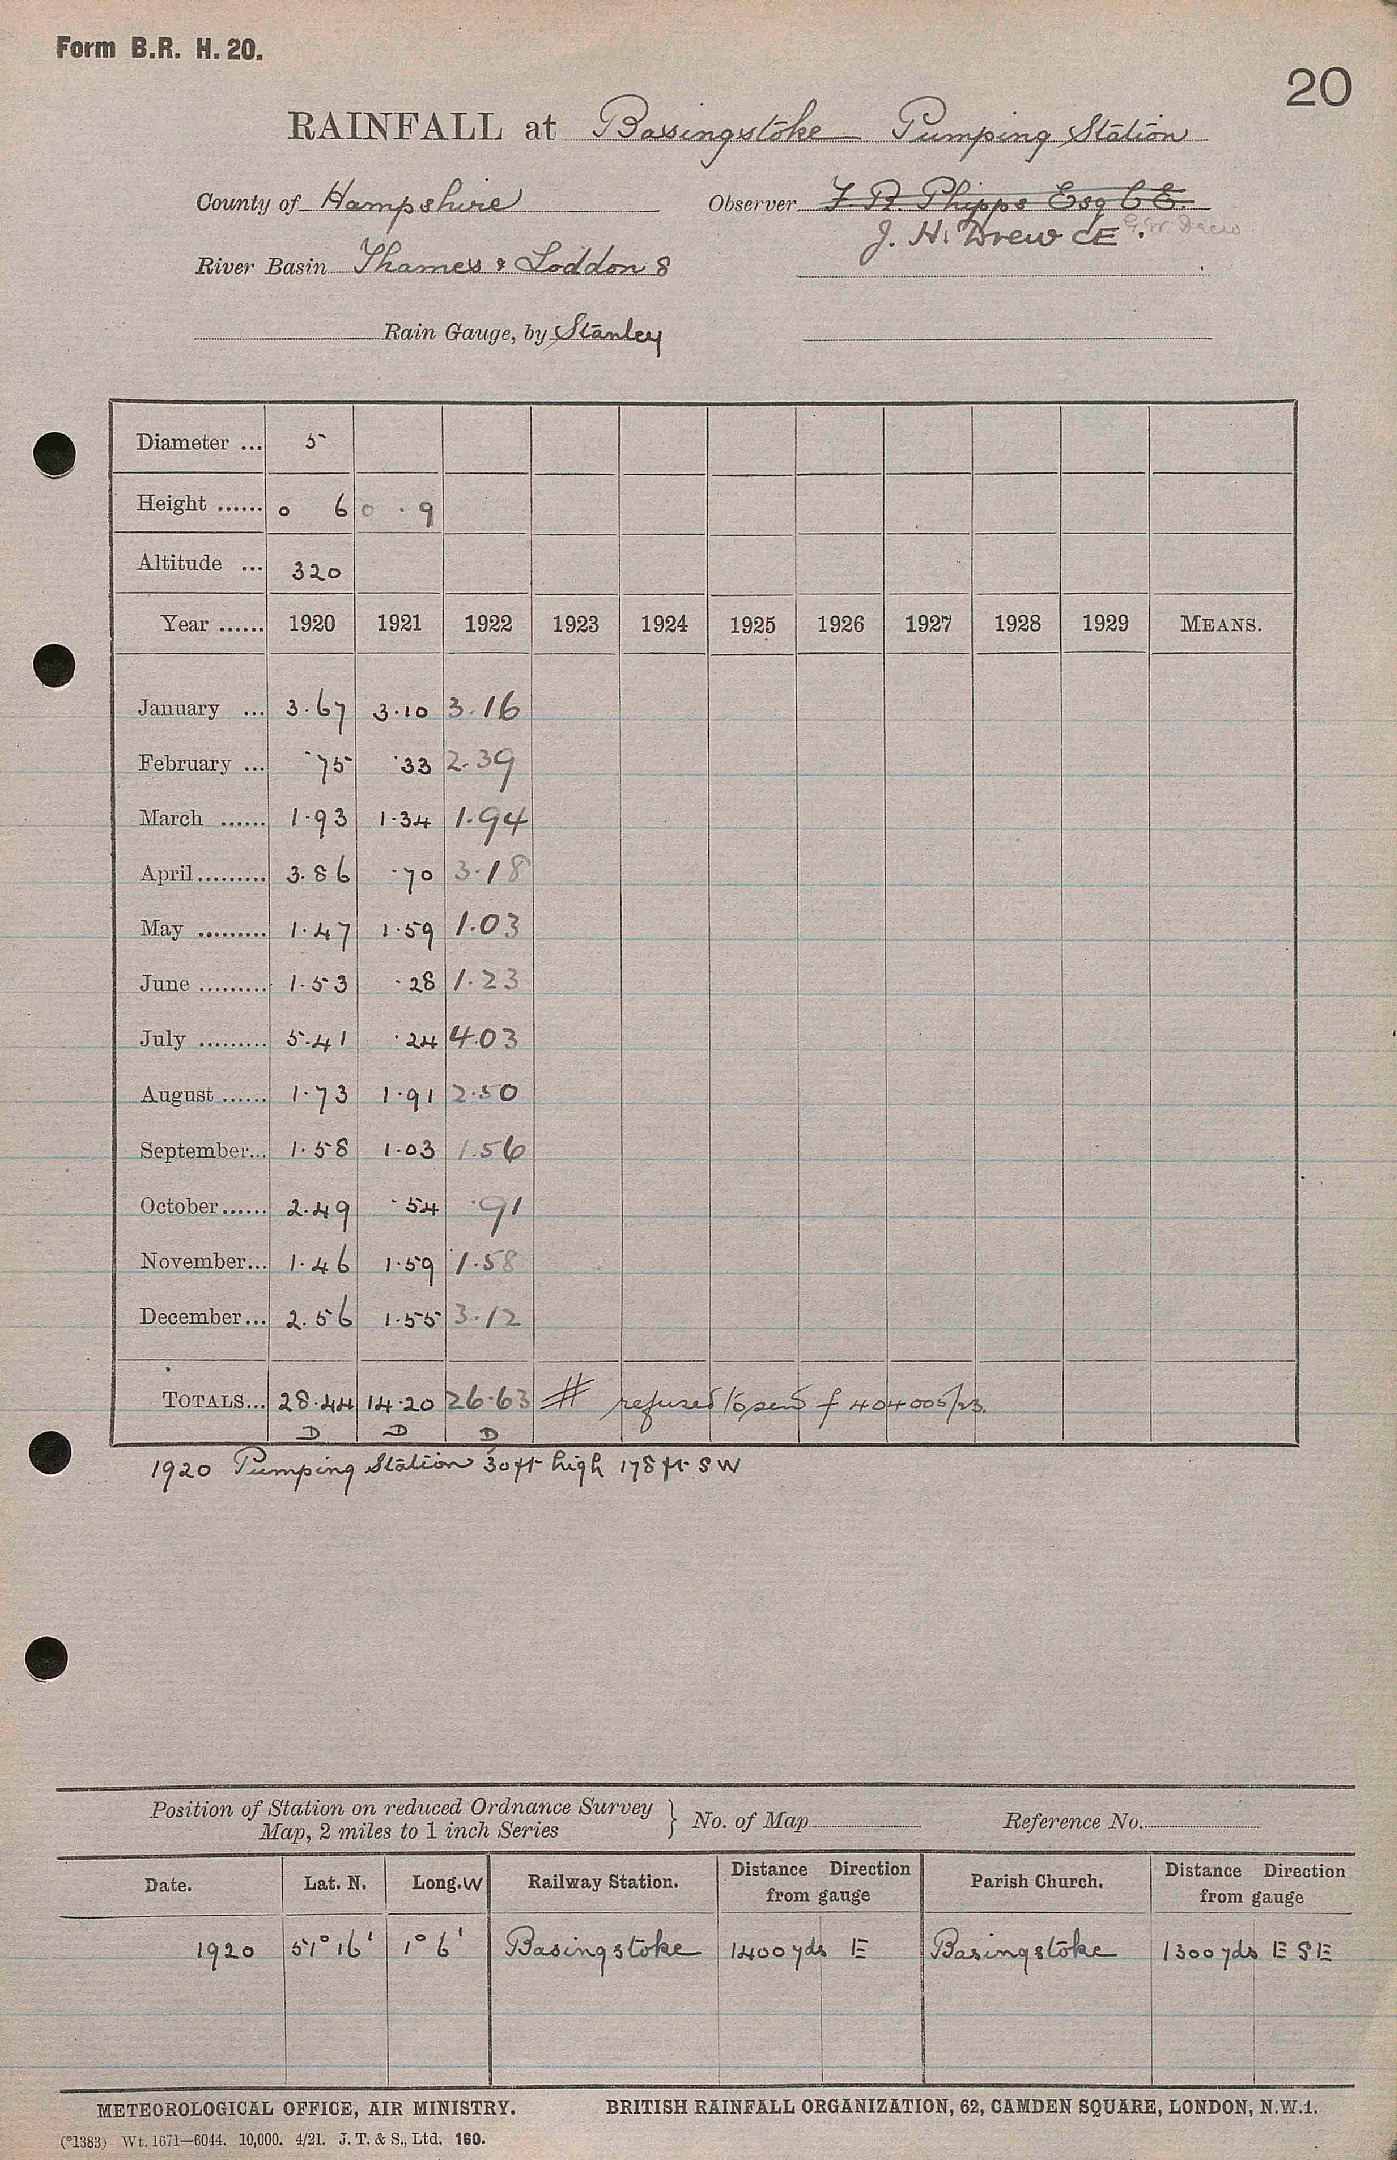 Form B.R. H. 20.
20
RAINFALL at Basingstoke Pumping Station
County of Hampshire Observer F. R. Phipps Esq C E.
J. H. Drew CE. G. W. Drew
River Basin Thames & Loddon 8
Rain Gauge, by Stanley
Diameter ... 5
Height ...... 0 6 0 . 9
Altitude ... 320
Year ...... 1920 1921 1922 1923 1924 1925 1926 1927 1928 1929 MEANS.
January ... 3.67 3.10 3.16
February ... .75 .33 2.39
March ...... 1.93 1.34 1.94
April......... 3.86 .70 3.18
May ......... 1.47 1.59 1.03
June ......... 1.53 .28 1.23
July ......... 5.41 .24 4.03
August ...... 1.73 1.91 2.50
September... 1.58 1.03 1.56
October...... 2.49 .54 .91
November... 1.46 1.59 1.58
December... 2.56 1.55 3.12
TOTALS... 28.44 14.20 26.63 # refused to send f 404005/23.
D D D
1920 Pumping Station 30 ft high 178 ft SW
Position of Station on reduced Ordnance Survey
Map, 2 miles to 1 inch Series } No. of Map Reference No.
Date. Lat. N. Long. W Railway Station. Distance Direction from gauge Parish Church. Distance Direction from gauge
1920 51° 16' 1° 6' Basingstoke 1400 yds E Basingstoke 1300 yds E S E
METEOROLOGICAL OFFICE, AIR MINISTRY. BRITISH RAINFALL ORGANIZATION, 62, CAMDEN SQUARE, LONDON, N.W.1.
(*1383) Wt. 1671—6044. 10,000. 4/21. J. T. & S., Ltd. 160.